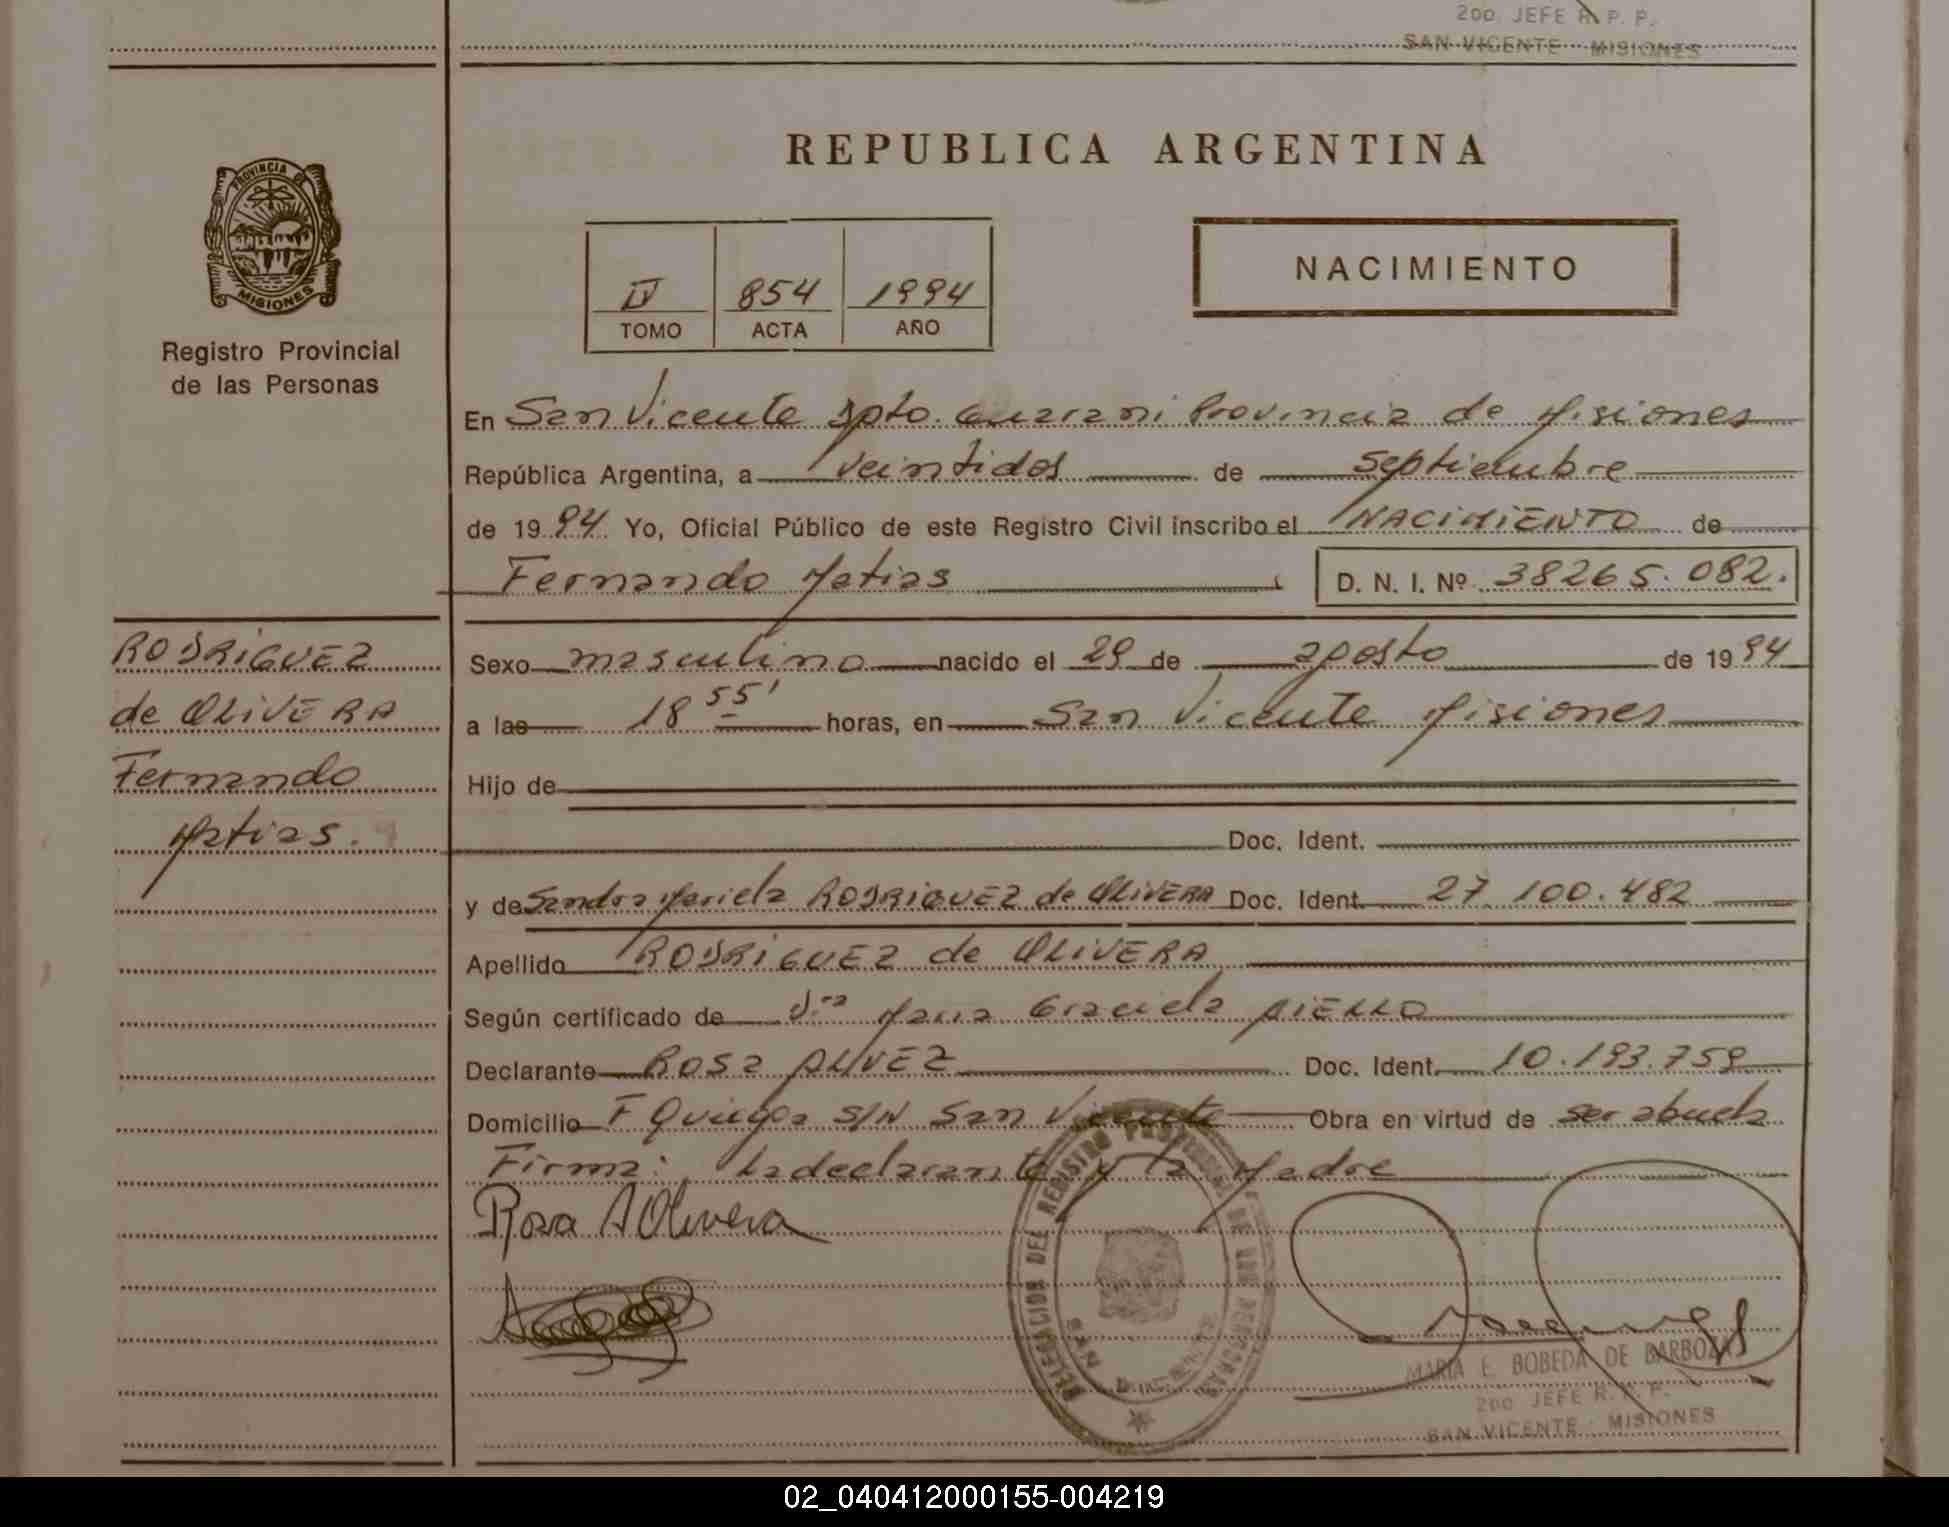 2do. JEFE R. P. P.
SAN VICENTE - MISIONES
REPUBLICA ARGENTINA
PROVINCIA DE
MISIONES
Registro Provincial
de las Personas
IV 854 1994
TOMO ACTA AÑO
NACIMIENTO
En San Vicente Dpto. Guarani Provincia de Misiones
República Argentina, a veintidos de septiembre
de 1994 Yo, Oficial Público de este Registro Civil inscribo el NACIMIENTO de
Fernando Matias D. N. I. Nº 38265.082.
RODRIGUEZ
de OLIVERA
Fernando
Matias.
Sexo masculino nacido el 29 de agosto de 1994
a las 18 55' horas, en San Vicente Misiones
Hijo de
Doc. Ident.
y de Sandra Mariela RODRIGUEZ de OLIVERA Doc. Ident. 27.100.482
Apellido RODRIGUEZ de OLIVERA
Según certificado de Dra Maria Graciela AIELLO
Declarante Rosa ALVEZ Doc. Ident. 10.193.759
Domicilio F Quiroga S/N San Vicente Obra en virtud de ser abuela
Firma: La declarante y la Madre
Rosa A Olivera
DELEGACION DEL REGISTRO PROVINCIAL DE LAS PERSONAS
SAN VICENTE
MARIA E. BOBEDA DE BARBOZA
2do JEFE R. P. P.
SAN VICENTE - MISIONES
02_040412000155-004219